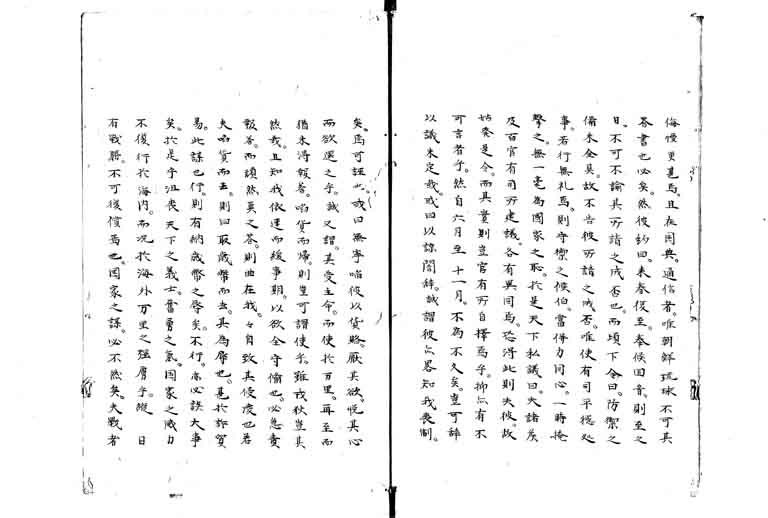 侮慢更甚焉。且在國典。通信者。唯朝鮮琉球不可其
答書也必矣。然彼約曰。来春復至。奉候回音。則至之
日。不可不諭其所請之成否也。而頃下令曰。防禦之
備未全具。故不告彼所請之成否。唯使有司平穏処
事。若行無礼焉。則守禦之侯伯。當併力同心。一時掩
擊之。無一毫為國家之恥。於是天下私議曰。夫諸侯
及百官有司所建議。各有異同焉。恐得此則失彼。故
姑発是令。而其實則豈官有所自擇焉乎。抑亦有不
可言者乎。然自六月至十一月。不為不久矣。豈可辞
以議未定哉。或曰以諒闇辞。誠謂彼亦畧知我喪制。
矣。焉可誣此。或曰無寧啗彼以貨賂。厭其欲。悦其心
而欲還之乎。誠又謂。其受主命。而使於万里。再至而
猶未得報答。啗貨而帰。則豈可謂使乎。雖戎狄豈其
然哉。且知我依違而緩事期。以欲全守備也。必急責
報答。而請然莫之答。則曲在我。々自致其侵凌也。若
夫啗貨而去。則曰取歳幣而去。其為辱也。甚於許貿
易。此謀也行。則有納歳幣之辱矣。不行。亦必誤大事
矣。於是乎沮喪天下之義士奮勇之氣。國家之威力
不復行於海内。而况於海外万里之强虜乎。縱 日
有戰勝。不可復償焉也。國家之謀。必不然矣。夫戰者